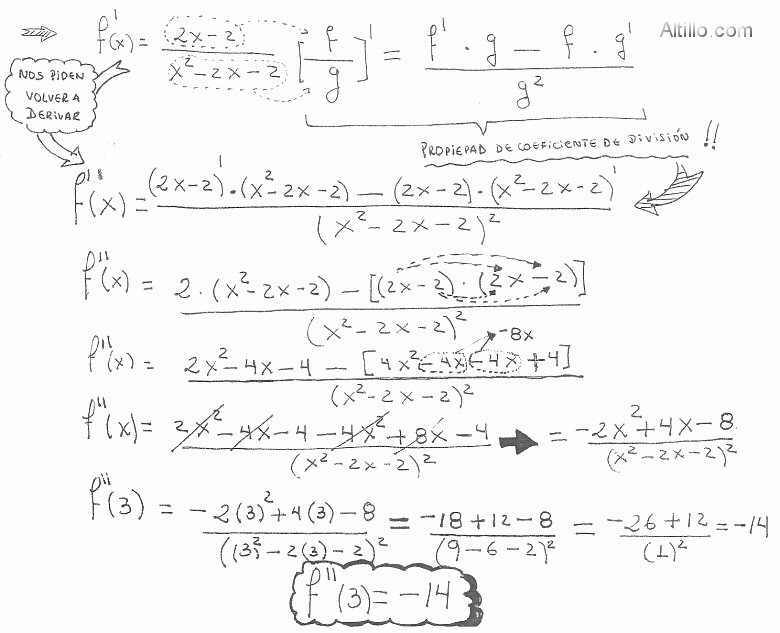 Altillo.com
f'(x) = (2x-2)/(x²-2x-2) [f/g]' = (f' · g - f · g')/g²
NOS PIDEN
VOLVER A
DERIVAR
PROPIEPAD DE COEFICIENTE DE DIVISIÓN !!
f''(x) = ((2x-2)'·(x²-2x-2) - (2x-2)·(x²-2x-2)')/(x²-2x-2)²
f''(x) = (2·(x²-2x-2) - [(2x-2)·(2x-2)])/(x²-2x-2)²
-8x
f''(x) = (2x²-4x-4 - [4x²-4x-4x+4])/(x²-2x-2)²
f''(x) = (2x²-4x-4-4x²+8x-4)/(x²-2x-2)² = (-2x²+4x-8)/(x²-2x-2)²
f''(3) = (-2(3)²+4(3)-8)/((3)²-2(3)-2)² = (-18+12-8)/(9-6-2)² = (-26+12)/(1)² = -14
f''(3) = -14